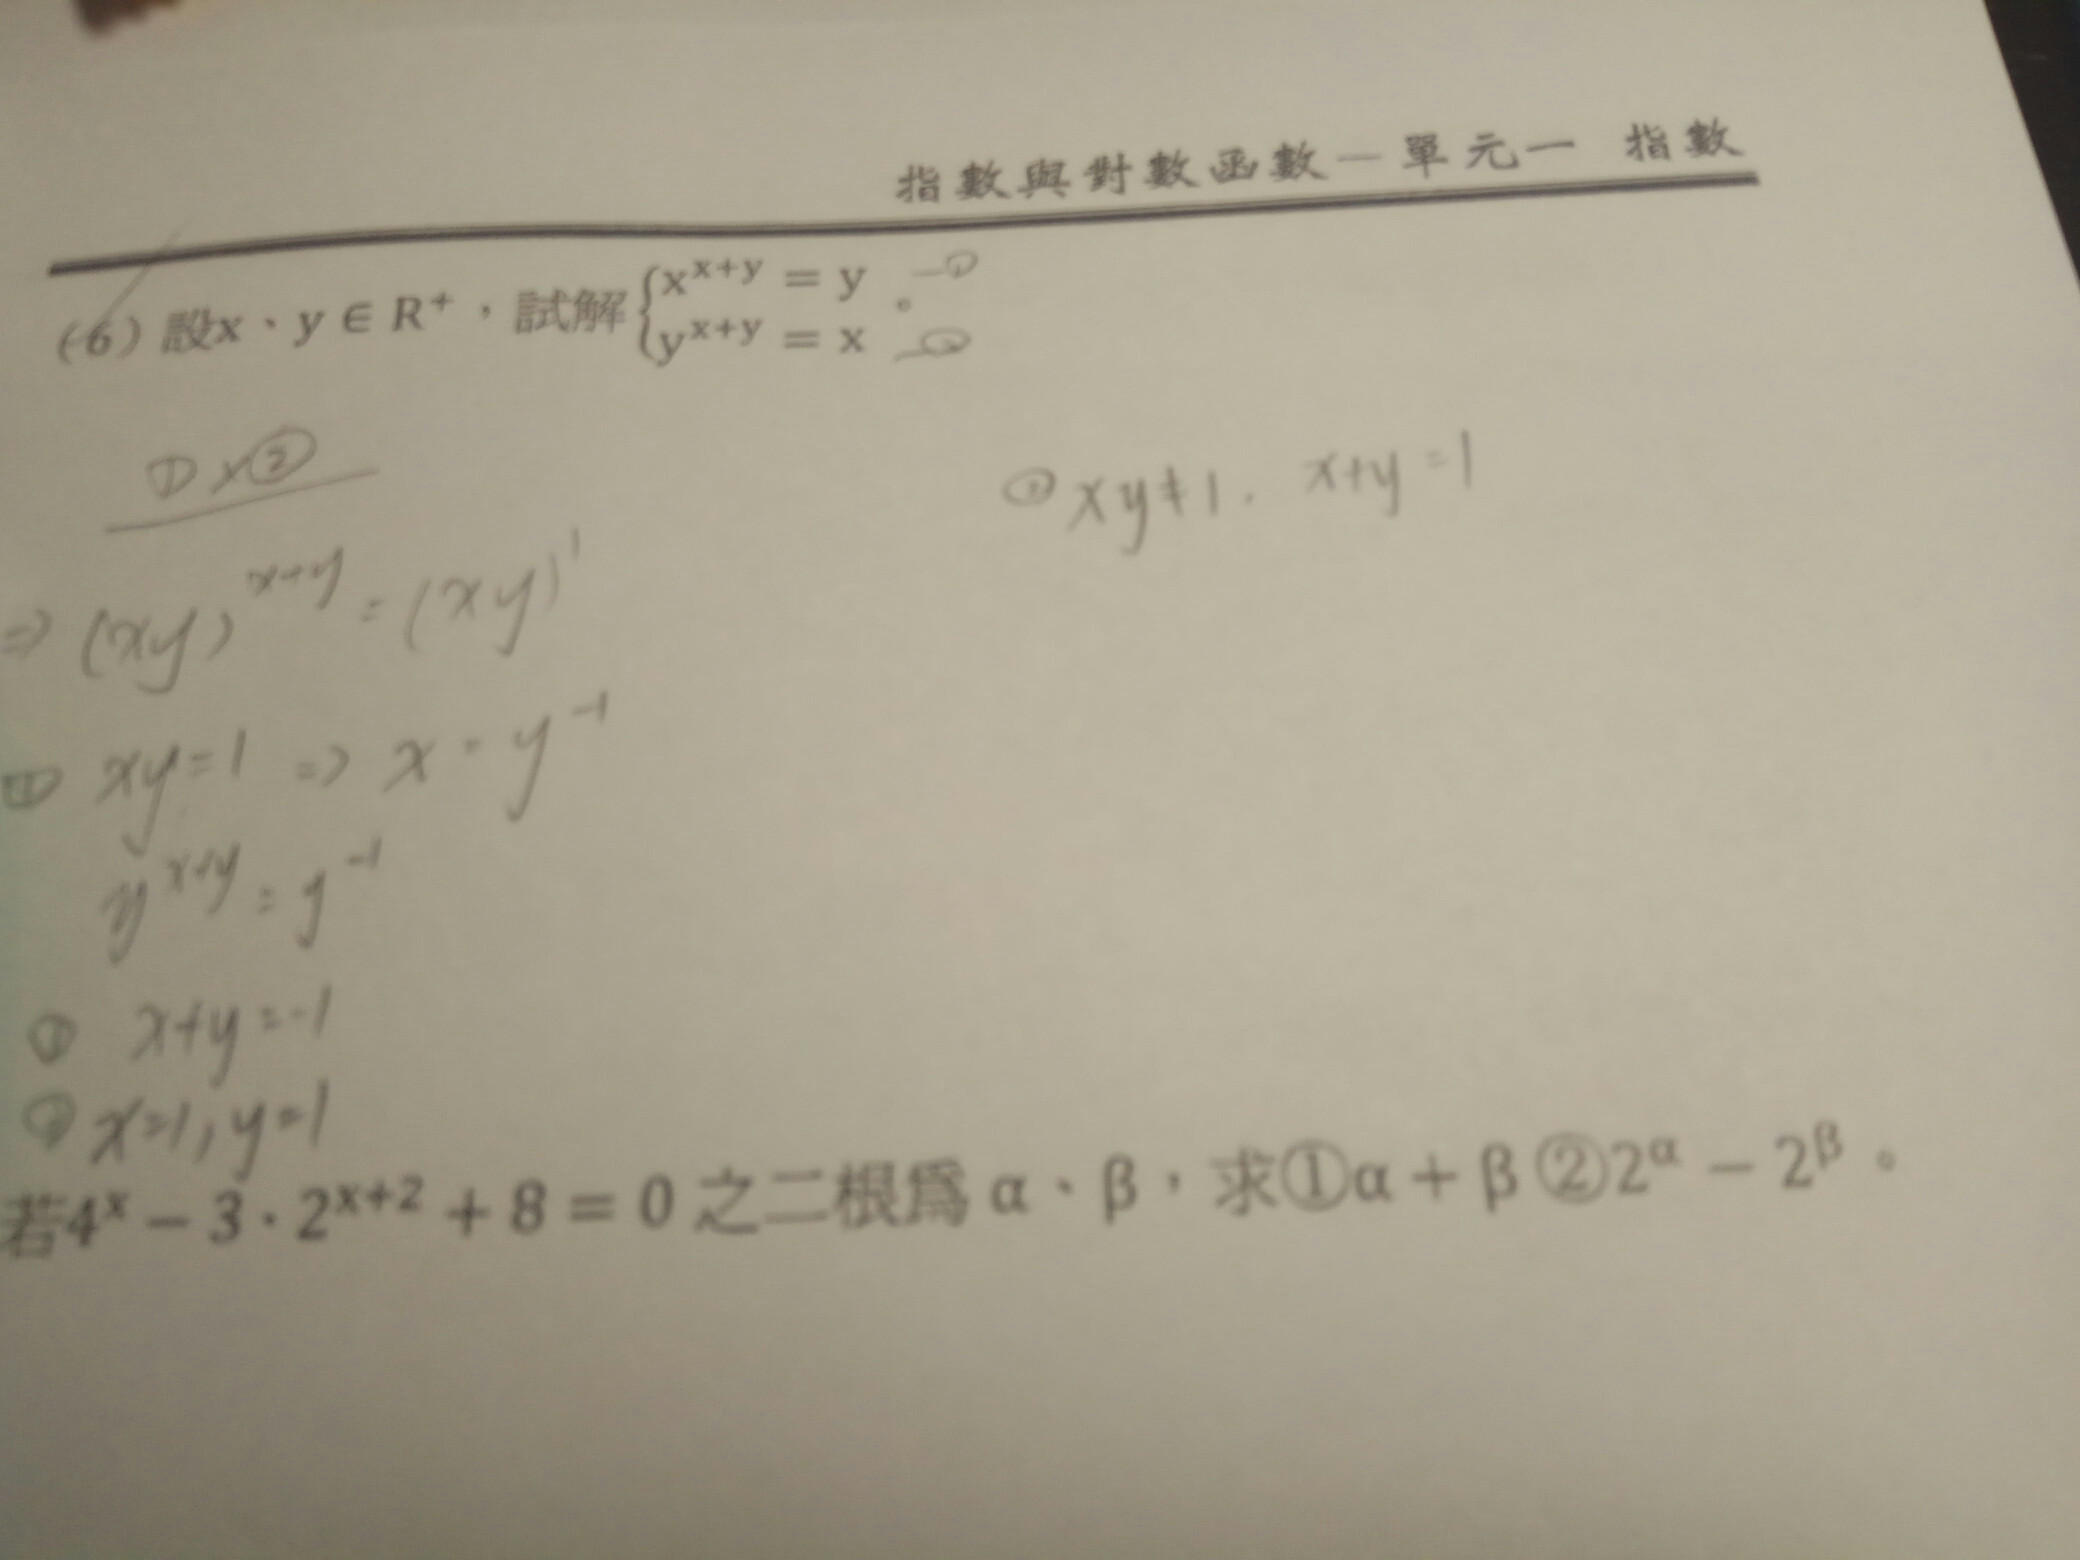 指數與對數函數－單元一 指數
(6) 設x、y ∈ R⁺，試解{x^{x+y} = y —①
y^{x+y} = x 。—②
①×②
② xy≠1. x+y=1
⇒ (xy)^{x+y} = (xy)^1
① xy=1 ⇒ x = y^{-1}
y^{x+y} = y^{-1}
① x+y=-1
② x=1, y=1
若4^x − 3·2^{x+2} + 8 = 0 之二根為 α、β，求①α + β ②2^α − 2^β。